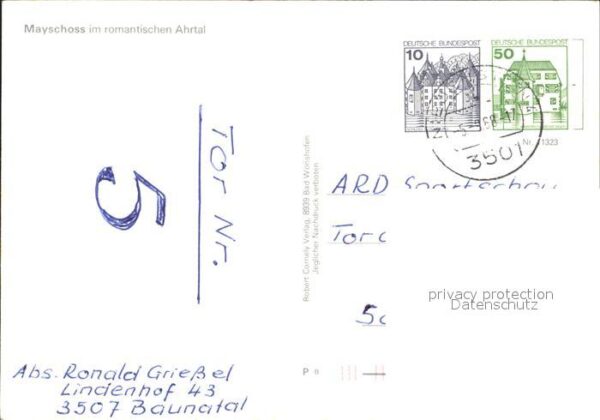 Mayschoss im romantischen Ahrtal
DEUTSCHE BUNDESPOST
10
DEUTSCHE BUNDESPOST
50
3501
Nr. 1323
Tor Nr.
5
Robert Cornely Verlag, 8939 Bad Wörishofen
Jeglicher Nachdruck verboten
ARD Sportschau
Torc
5c
privacy protection
Datenschutz
P 8
Abs. Ronald Grießel
Lindenhof 43
3507 Baunatal